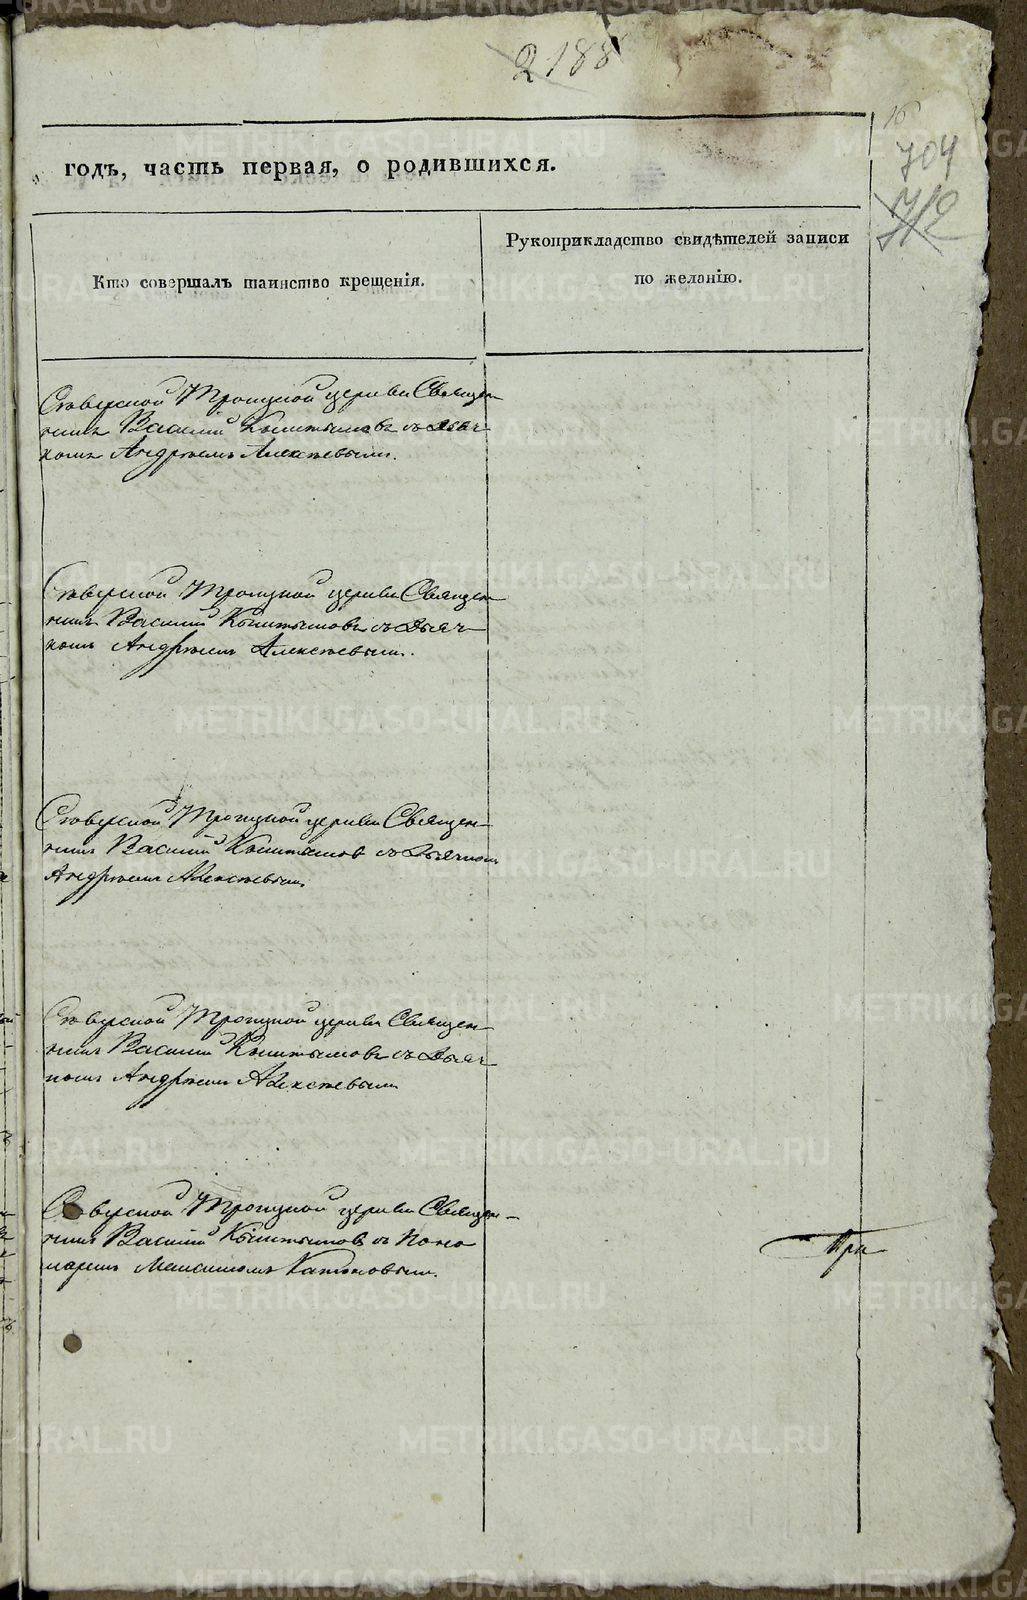 2188
16
704
712
годъ, часть первая, о родившихся.
Кто совершалъ таинство крещенія.
Рукоприкладство свидѣтелей записи
по желанію.
Сѣверской Троицкой церкви Священ-
никъ Василій Кыштымовъ съ Дьяч-
комъ Андреемъ Алексѣевымъ.
Сѣверской Троицкой церкви Священ-
никъ Василій Кыштымовъ съ Дьяч-
комъ Андреемъ Алексѣевымъ.
Сѣверской Троицкой церкви Священ-
никъ Василій Кыштымовъ съ Дьячкомъ
Андреемъ Алексѣевымъ
Сѣверской Троицкой церкви Священ-
никъ Василій Кыштымовъ съ Дьяч-
комъ Андреемъ Алексѣевымъ
Сѣверской Троицкой церкви Священ-
никъ Василій Кыштымовъ съ Поно
маремъ Максимомъ
При
METRIKI.GASO-URAL.RU